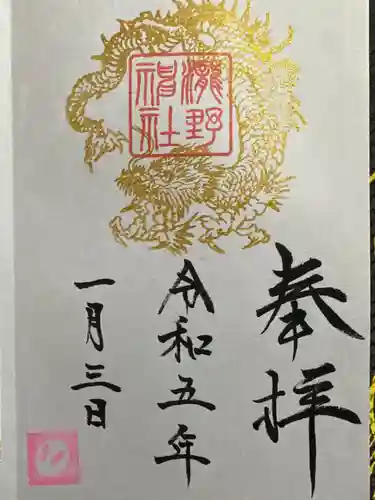 瀧野
神社
奉拝
令和五年
一月三日